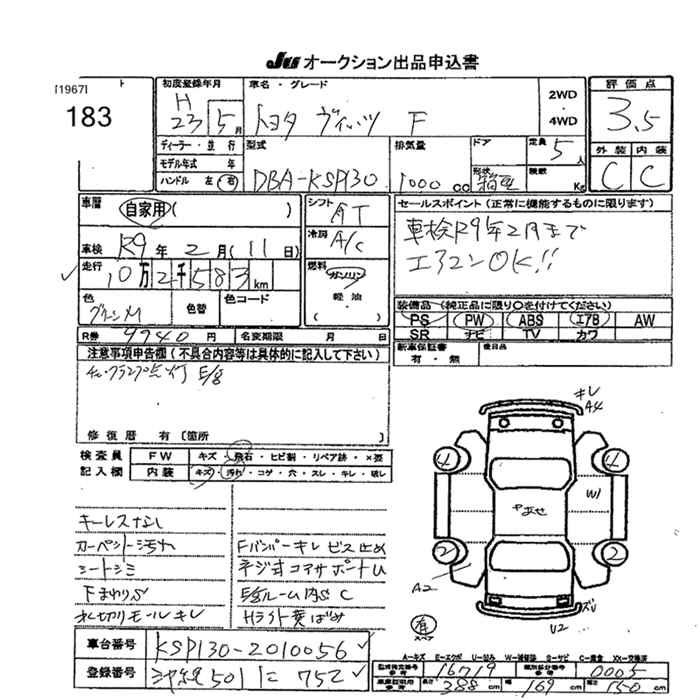 JU オークション出品申込書
[1967]
183
初度登録年月
H 23 5月
車名・グレード
トヨタ ヴィッツ F
2WD
・
4WD
評価点
3.5
外装 内装
C C
ディーラー・並行
モデル年式 年
ハンドル 左 右
型式
DBA-KSP130
排気量
1000 cc
ドア
形状
箱型
定員 5人
積数 Kg
車歴
自家用( )
シフト AT
冷房 A/C
燃料 ガソリン
軽油
( )
車検 R9年2月(11日)
走行 10万2千583km
色 グリーンM
色替
色コード
R券 9940円 名変期限 月 日
セールスポイント(正常に機能するものに限ります)
車検R9年2月まで
エアコンOK!!
装備品(純正品に限り○を付けてください)
PS PW ABS エアB AW
SR ナビ TV カワ
新車保証書
有・無
後日品
注意事項申告欄(不具合内容等は具体的に記入して下さい)
点灯 E/g
修復歴 有〔箇所 〕
検査員 FW キズ・飛石・ヒビ割・リペア跡・×要
記入欄 内装 キズ・汚れ・コゲ・穴・スレ・キレ・破レ
キーレスなし
カーペット汚れ
シートシミ
下まわりS
水切りモールキレ
Fバンパーキレ ビス止め
ネジ式コアサポートU
E/gルーム内S C
Hライト黄ばみ
キレ
A4
4 4
W1
2 2
A2
U2
有
ス
A=キズ E=エクボ U=凹み W=補修跡 S=サビ C=腐食 XX=交換済
車台番号 KSP130-2010056
登録番号 501 に 752
16719
0005
長さ 388cm 幅 169cm 高さ 150cm